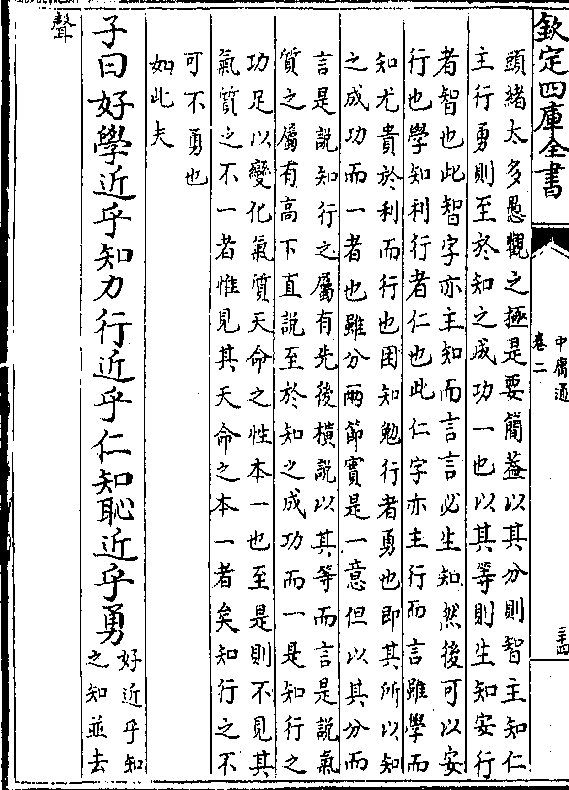 欽定四庫全書
中庸通
卷二
頭緒太多愚觀之極是要簡葢以其分則智主知仁
主行勇則至於知之成功一也以其等則生知安行
者智也此智字亦主知而言言必生知然後可以安
行也學知利行者仁也此仁字亦主行而言雖學而
知尤貴於利而行也困知勉行者勇也即其所以知
之成功而一者也雖分兩節實是一意但以其分而
言是說知行之屬有先後橫說以其等而言是說氣
質之屬有高下直說至於知之成功而一是知行之
功足以變化氣質天命之性本一也至是則不見其
氣質之不一者惟見其天命之本一者矣知行之不
可不勇也
如此夫
子曰好學近乎知力行近乎仁知恥近乎勇
好近乎知
之知並去
聲